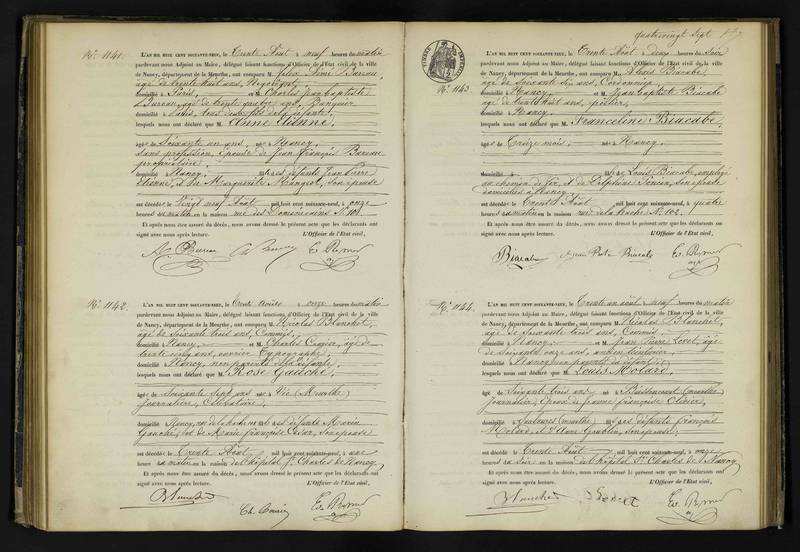 N° 1141. L'AN MIL HUIT CENT SOIXANTE-NEUF, le Trente Août à neuf heures du matin
pardevant nous Adjoint au Maire, délégué faisant fonctions d'Officier de l'État civil de la ville
de Nancy, département de la Meurthe, ont comparu M. Félix Aimé Bureau,
âgé de trente huit ans, Négociant,
domicilié à Paris, et M. Charles Jean Baptiste
Bureau, âgé de trente quatre ans, Banquier
domicilié à Paris, tous deux fils de la défunte,
lesquels nous ont déclaré que M. Anne Etienne,
âgée de Soixante un ans, née à Nancy,
sans profession, épouse de Jean François Bureau
propriétaire,
domiciliée à Nancy, défunts Jean Pierre
Etienne, et de Marguerite Mangeot, son épouse
est décédée le vingt neuf Août mil huit cent soixante-neuf, à onze
heures du matin en la maison rue des Dominicains N° 10.
Et après nous être assuré du décès, nous avons dressé le présent acte que les déclarants ont
signé avec nous après lecture. L'Officier de l'État civil,
N° 1142. L'AN MIL HUIT CENT SOIXANTE-NEUF, le Trente Août à onze heures du matin
pardevant nous Adjoint au Maire, délégué faisant fonctions d'Officier de l'État civil de la ville
de Nancy, département de la Meurthe, ont comparu M. Nicolas Blanchet,
âgé de Soixante trois ans, Commis,
domicilié à Nancy, et M. Charles âgé de
trente cinq ans, ouvrier Typographe,
domicilié à Nancy, non parents de la défunte,
lesquels nous ont déclaré que M. Rose Gauche,
âgée de Soixante Sept ans née à Vic (Meurthe)
journalière, Célibataire,
domiciliée à Nancy, défunts
Gauche, et de Marie Françoise son épouse
est décédée le Trente Août mil huit cent soixante-neuf, à une
heure du matin en la maison de l'hôpital St Charles de Nancy
Et après nous être assuré du décès, nous avons dressé le présent acte que les déclarants ont
signé avec nous après lecture. L'Officier de l'État civil,
Blanchet
quatrevingt sept
N° 1143. L'AN MIL HUIT CENT SOIXANTE-NEUF, le Trente Août à deux heures du soir
pardevant nous Adjoint au Maire, délégué faisant fonctions d'Officier de l'État civil de la ville
de Nancy, département de la Meurthe, ont comparu M. Alexis Biacabe,
âgé de soixante six ans, Cordonnier,
domicilié à Nancy, et M. Jean Baptiste Biacabe
âgé de trente huit ans, 
domicilié à Nancy,
lesquels nous ont déclaré que M. Franceline Biacabe,
âgée de Treize mois, née à Nancy,
domiciliée à Louis Biacabe, employé
au chemin de fer, et de Delphine son épouse
domiciliés à Nancy,
est décédée le Trente Août mil huit cent soixante-neuf, à quatre
heures du matin en la maison N° 102.
Et après nous être assuré du décès, nous avons dressé le présent acte que les déclarants ont
signé avec nous après lecture. L'Officier de l'État civil,
Biacabe
N° 1144. L'AN MIL HUIT CENT SOIXANTE-NEUF, le Trente un août à Neuf heures du matin
pardevant nous Adjoint au Maire, délégué faisant fonctions d'Officier de l'État civil de la ville
de Nancy, département de la Meurthe, ont comparu M. Nicolas Blanchet,
âgé de Soixante trois ans, Commis,
domicilié à Nancy, et M. Jean Pierre âgé
de Soixante onze ans, ancien
domicilié à Nancy, non parents du défunt,
lesquels nous ont déclaré que M. Louis Molard,
âgé de Soixante trois ans né à (Meurthe)
journalier, époux de Jeanne Françoise Olivier,
domicilié à (Meurthe) défunts François
Molard, et d'Anne son épouse,
est décédé le Trente Août mil huit cent soixante-neuf, à onze
heures du soir en la maison de l'hôpital St Charles de Nancy
Et après nous être assuré du décès, nous avons dressé le présent acte que les déclarants ont
signé avec nous après lecture. L'Officier de l'État civil,
Blanchet